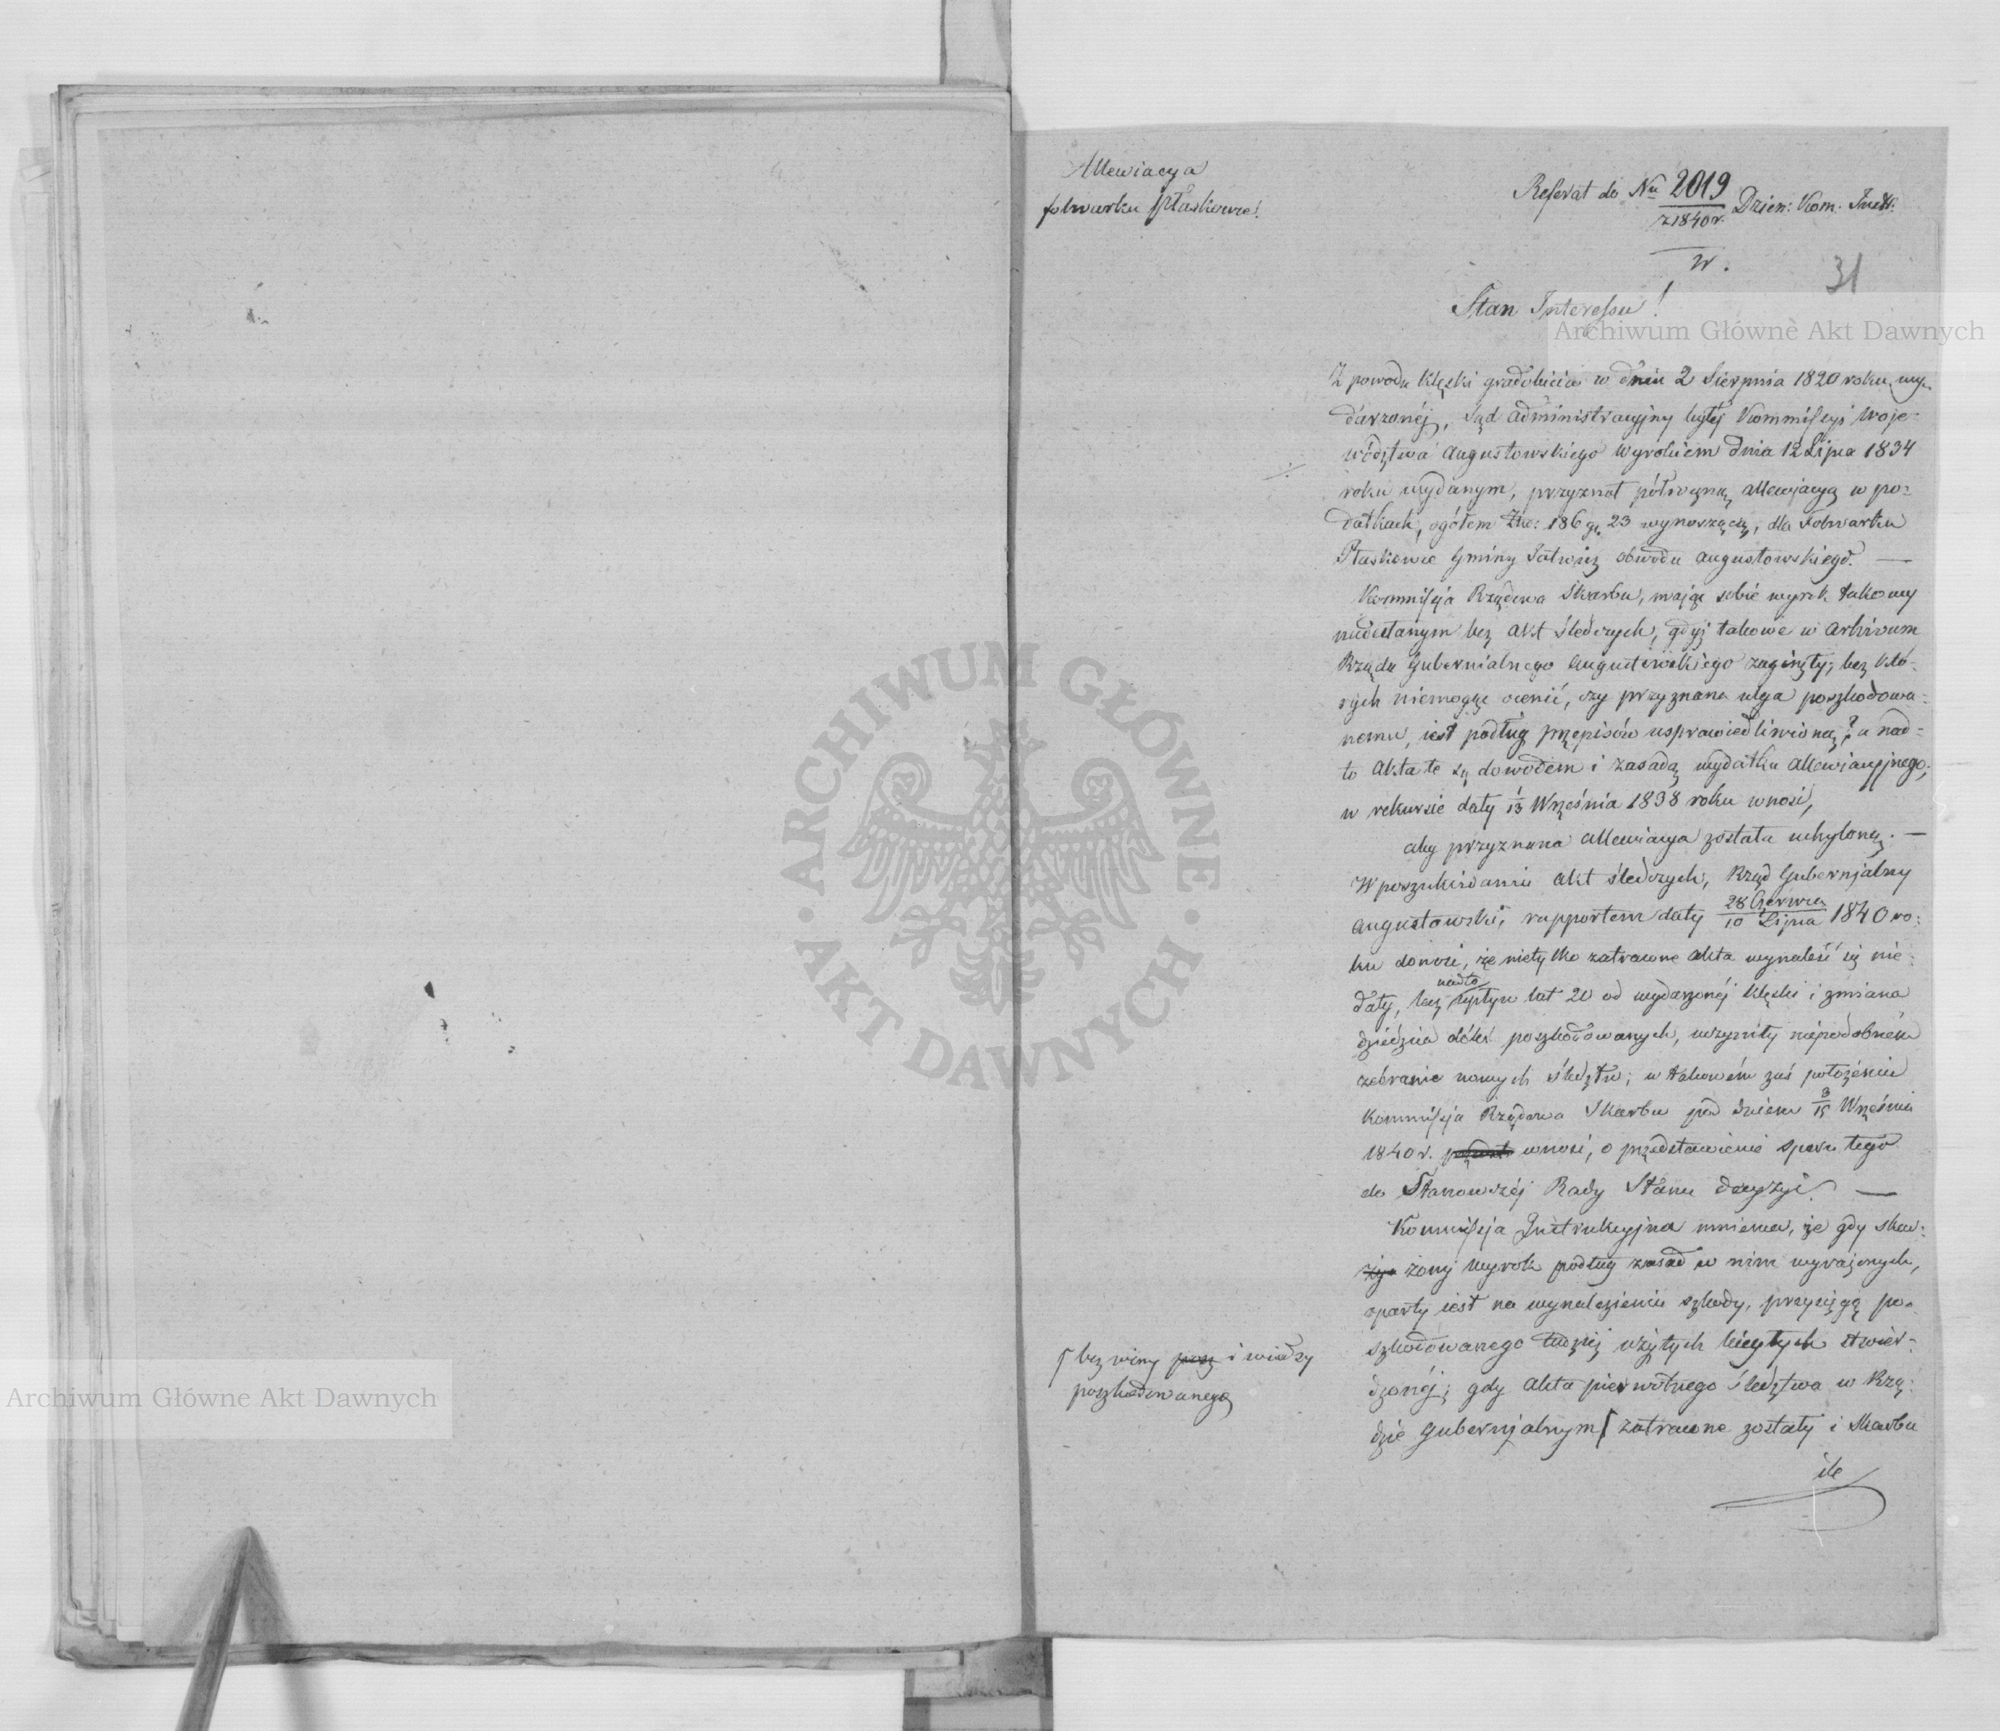 Allewiacya
folwarku Ptaskowce!
Referat do Nu 2019 Dzien: Kom. Instr.
z 1840 r.
31
Stan Interessu!
Z powodu klęski gradobicia w dniu 2 Sierpnia 1820 roku wy-
darzonéj, Sąd administracyjny byłéj Kommissyi Woje-
wództwa Augustowskiego wyrokiem dnia 12 Lipca 1834
roku wydanym, przyznał półroczną allewjacyą w po-
datkach, ogółem Złp: 186 gr. 23 wynoszącą, dla folwarku
Ptaskowce Gminy Jatwież obwodu augustowskiego. —
Kommissja Rządowa Skarbu, mając sobie wyrok takowy
nadesłanym bez akt śledczych, gdyż takowe w Arhivum
Rządu Gubernialnego Augustowskiego zaginęły; bez któ-
rych niemogąc ocenić, czy przyznana ulga poszkodowa-
nemu, iest podług przepisów usprawiedliwioną? a nad-
to akta te są dowodem i zasadą wydatku allewjacyjnego;
w rekursie daty 1/13 Września 1838 roku wnosi,
aby przyznana allewiacya została uchyloną. —
W poszukiwaniu akt śledczych, Rząd Gubernjalny
Augustowski, rapportem daty 28 Czerwca/10 Lipca 1840 ro-
ku donosi, że nietylko zatracone akta wynaleść się nie-
nadto
dały, lecz upływ lat 20 od wydarzonéj klęski i zmiana
dziedzica dóbr poszkodowanych, uczyniły niepodobném
zebranie nowych śledztw; w takowém zaś położeniu
Kommissja Rządowa Skarbu pod dniem 3/15 Września
1840 r. wnosi, o przedstawienie sporu tego
do Stanowczéj Rady Stanu decyzyi. —
Kommissja Instrukcyjna mniema, że gdy skar-
żony wyrok podług zasad w nim wyrażonych,
oparty iest na wynalezieniu szkody, przysięgą po-
szkodowanego tudzież użytych biegłych stwier-
dzonéj; gdy akta pierwotnego śledztwa w Rzą-
dzie Gubernjalnym ſ zatracone zostały i Skarbu
ile
ſ bez winy i wiedzy
poszkodowanego
Archiwum Główne Akt Dawnych
Archiwum Główne Akt Dawnych
ARCHIWUM GŁÓWNE · AKT DAWNYCH ·